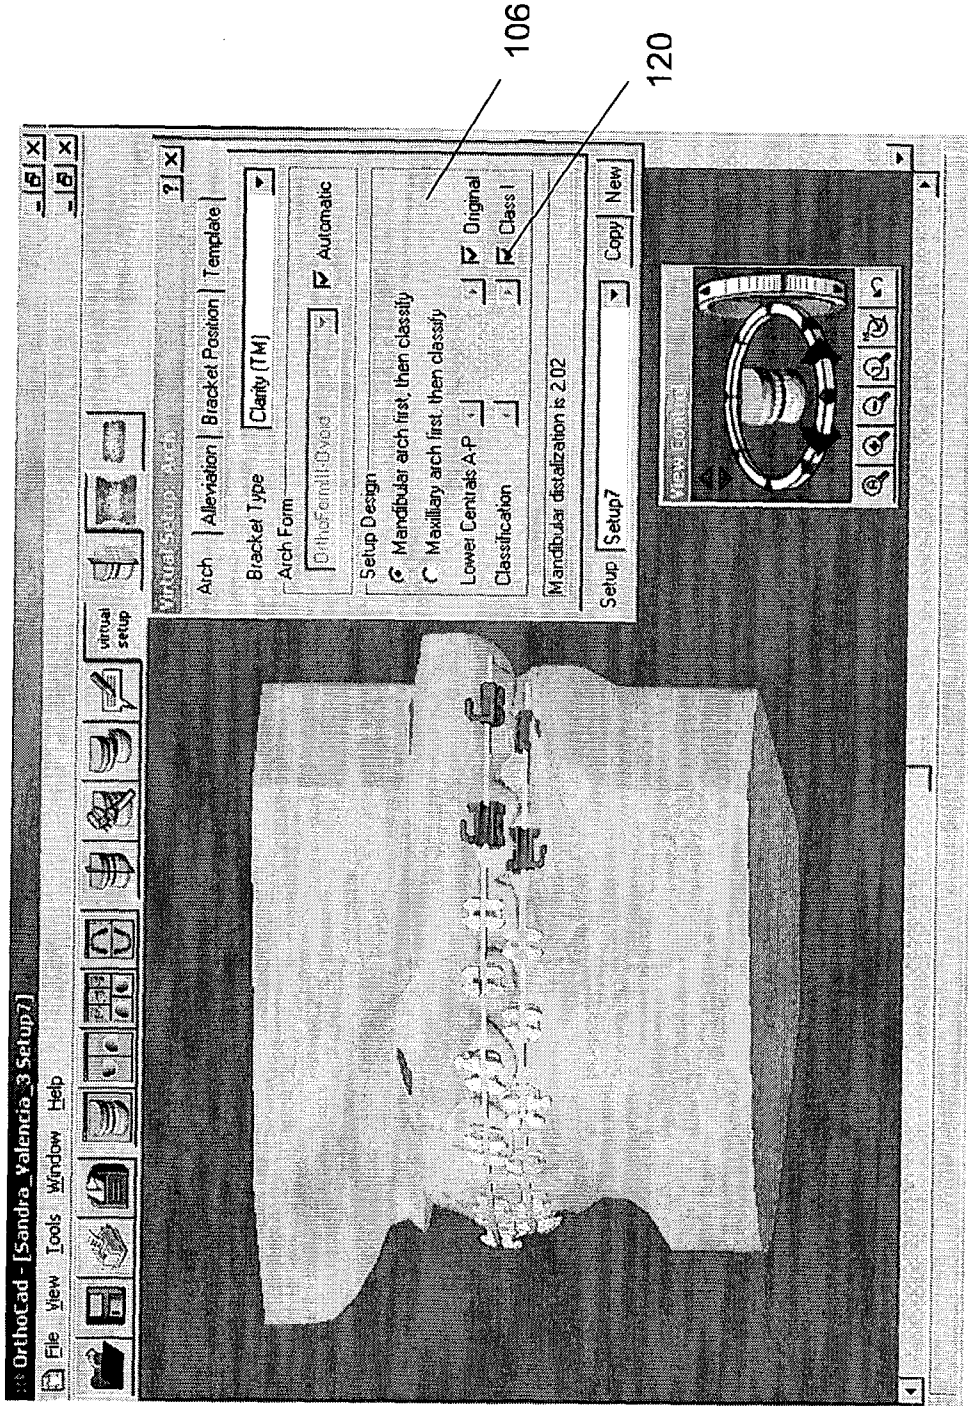 OrthoCad - [Sandra_Valencia_3 Setup7]
File View Tools Window Help
virtual setup
Virtual Setup - Arch
Arch Alleviation Bracket Position Template
Bracket Type Clarity (TM)
Arch Form
OrthoFormIII-Ovoid Automatic
Setup Design
Mandibular arch first, then classify
Maxilliary arch first, then classify
Lower Centrals A-P Original
Classification Class I
Mandibular distalization is 2.02
Setup Setup7 Copy New
View Control
106
120